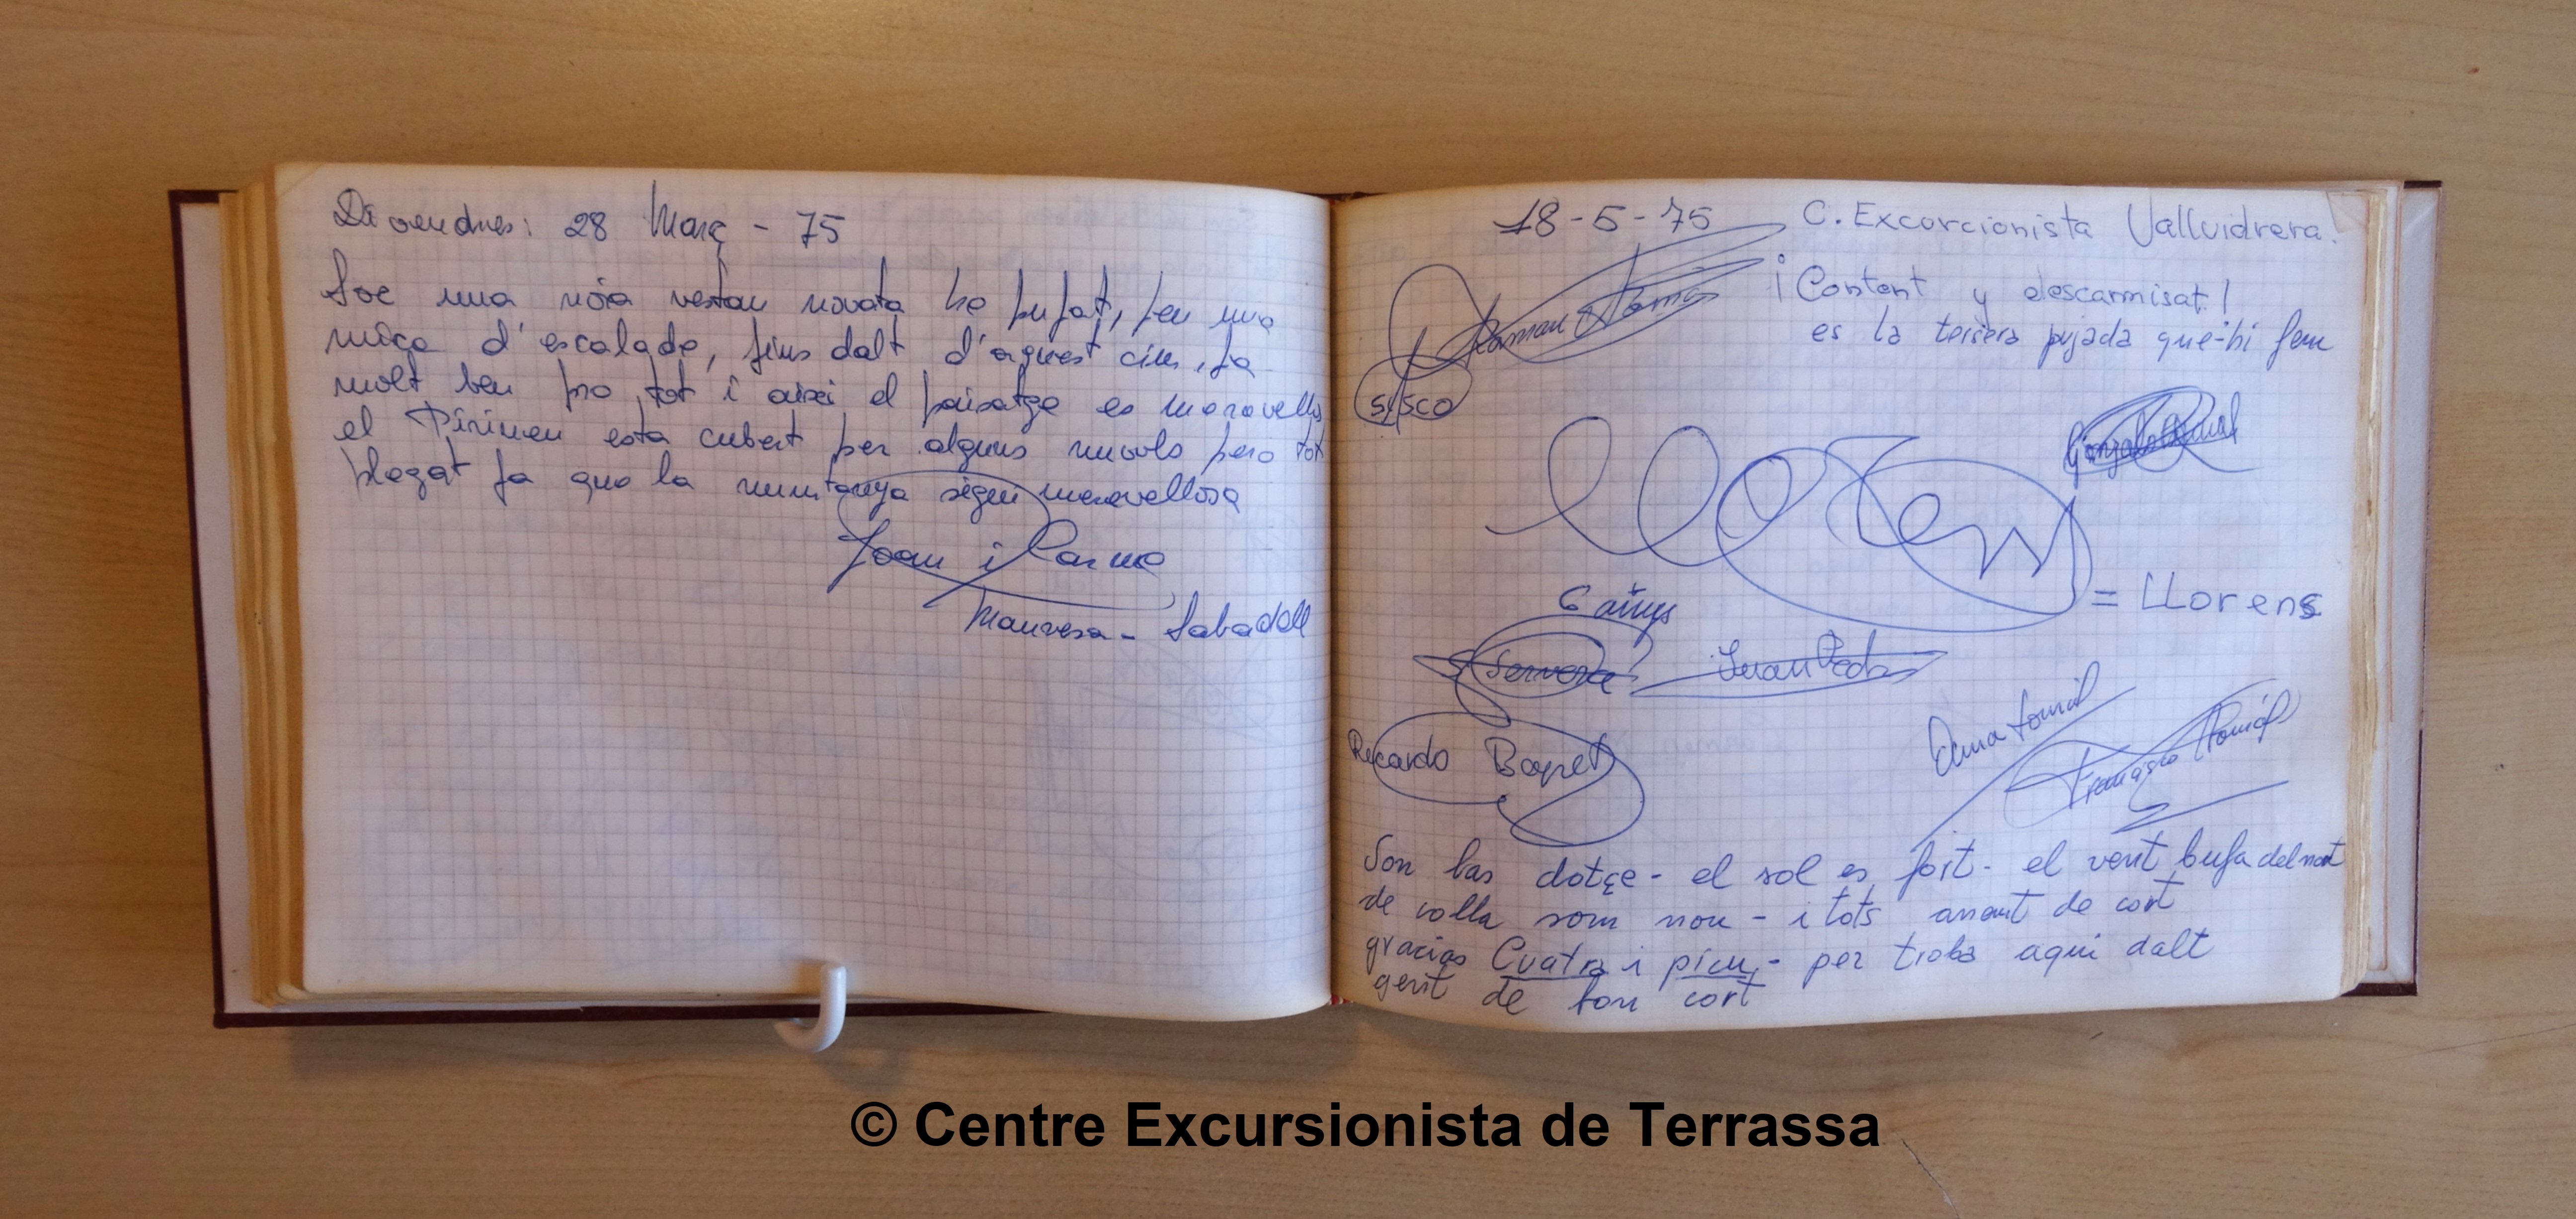 Divendres: 28 Març - 75
Soc una nòia vestan novata he pujat, fen una
mica d'escalade, fins dalt d'aquest cim, fa
molt ben pro tot i aixi el paisatge es meravellos
el Pirineu esta cubert per alguns nuvols pero tot
plegat fa que la muntanya sigui meravellosa
Joan i Carme
Manresa - Sabadell
18-5-75 C. Excorcionista Vallvidrera.
¡Content y descarmisat!
es la tersera pujada que-hi fem
Sisco
Llorens
= LLorens
6 añys
Juan
Ricardo Bapet
Anna Tomàs
Son las dotçe - el sol es fort - el vent bufa del nort
de colla som nou - i tots anant de cort
gracias Cuatra i picu - per troba aqui dalt
gent de bon cort
© Centre Excursionista de Terrassa